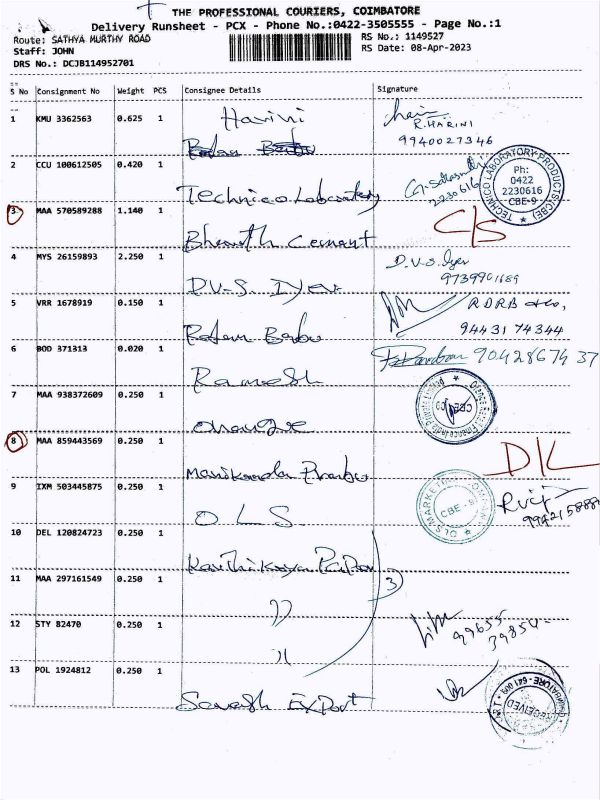 THE PROFESSIONAL COURIERS, COIMBATORE
Delivery Runsheet - PCX - Phone No.:0422-3505555 - Page No.:1
Route: SATHYA MURTHY ROAD RS No.: 1149527
Staff: JOHN RS Date: 08-Apr-2023
DRS No.: DCJB114952701
S No Consignment No Weight PCS Consignee Details Signature
1 KMU 3362563 0.625 1 Harini
R.HARINI
9940027346
2 CCU 100612505 0.420 1 Technico Laboratory
2230616
TECHNICO LABORATORY PRODUCTS (CBE)
Ph:
0422
2230616
CBE-9
3 MAA 570589288 1.140 1 Bharath Cement C/S
4 MYS 26159893 2.250 1 D.V.S. Iyer D.V.S. Iyer
9739901689
5 VRR 1678919 0.150 1 Ratan Babu RDRB &Co,
9443174344
6 BOD 371313 0.020 1 Ramesh 9042867437
7 MAA 938372609 0.250 1 orange
8 MAA 859443569 0.250 1 Manikanda Prabu DK
9 IXM 503445875 0.250 1 OLS
OLS MARKETING COMPANY
CBE - 9
10 DEL 120824723 0.250 1
11 MAA 297161549 0.250 1 )) 3
12 STY 82470 0.250 1 )) 99655
39854
13 POL 1924812 0.250 1 Export
RECEIVED